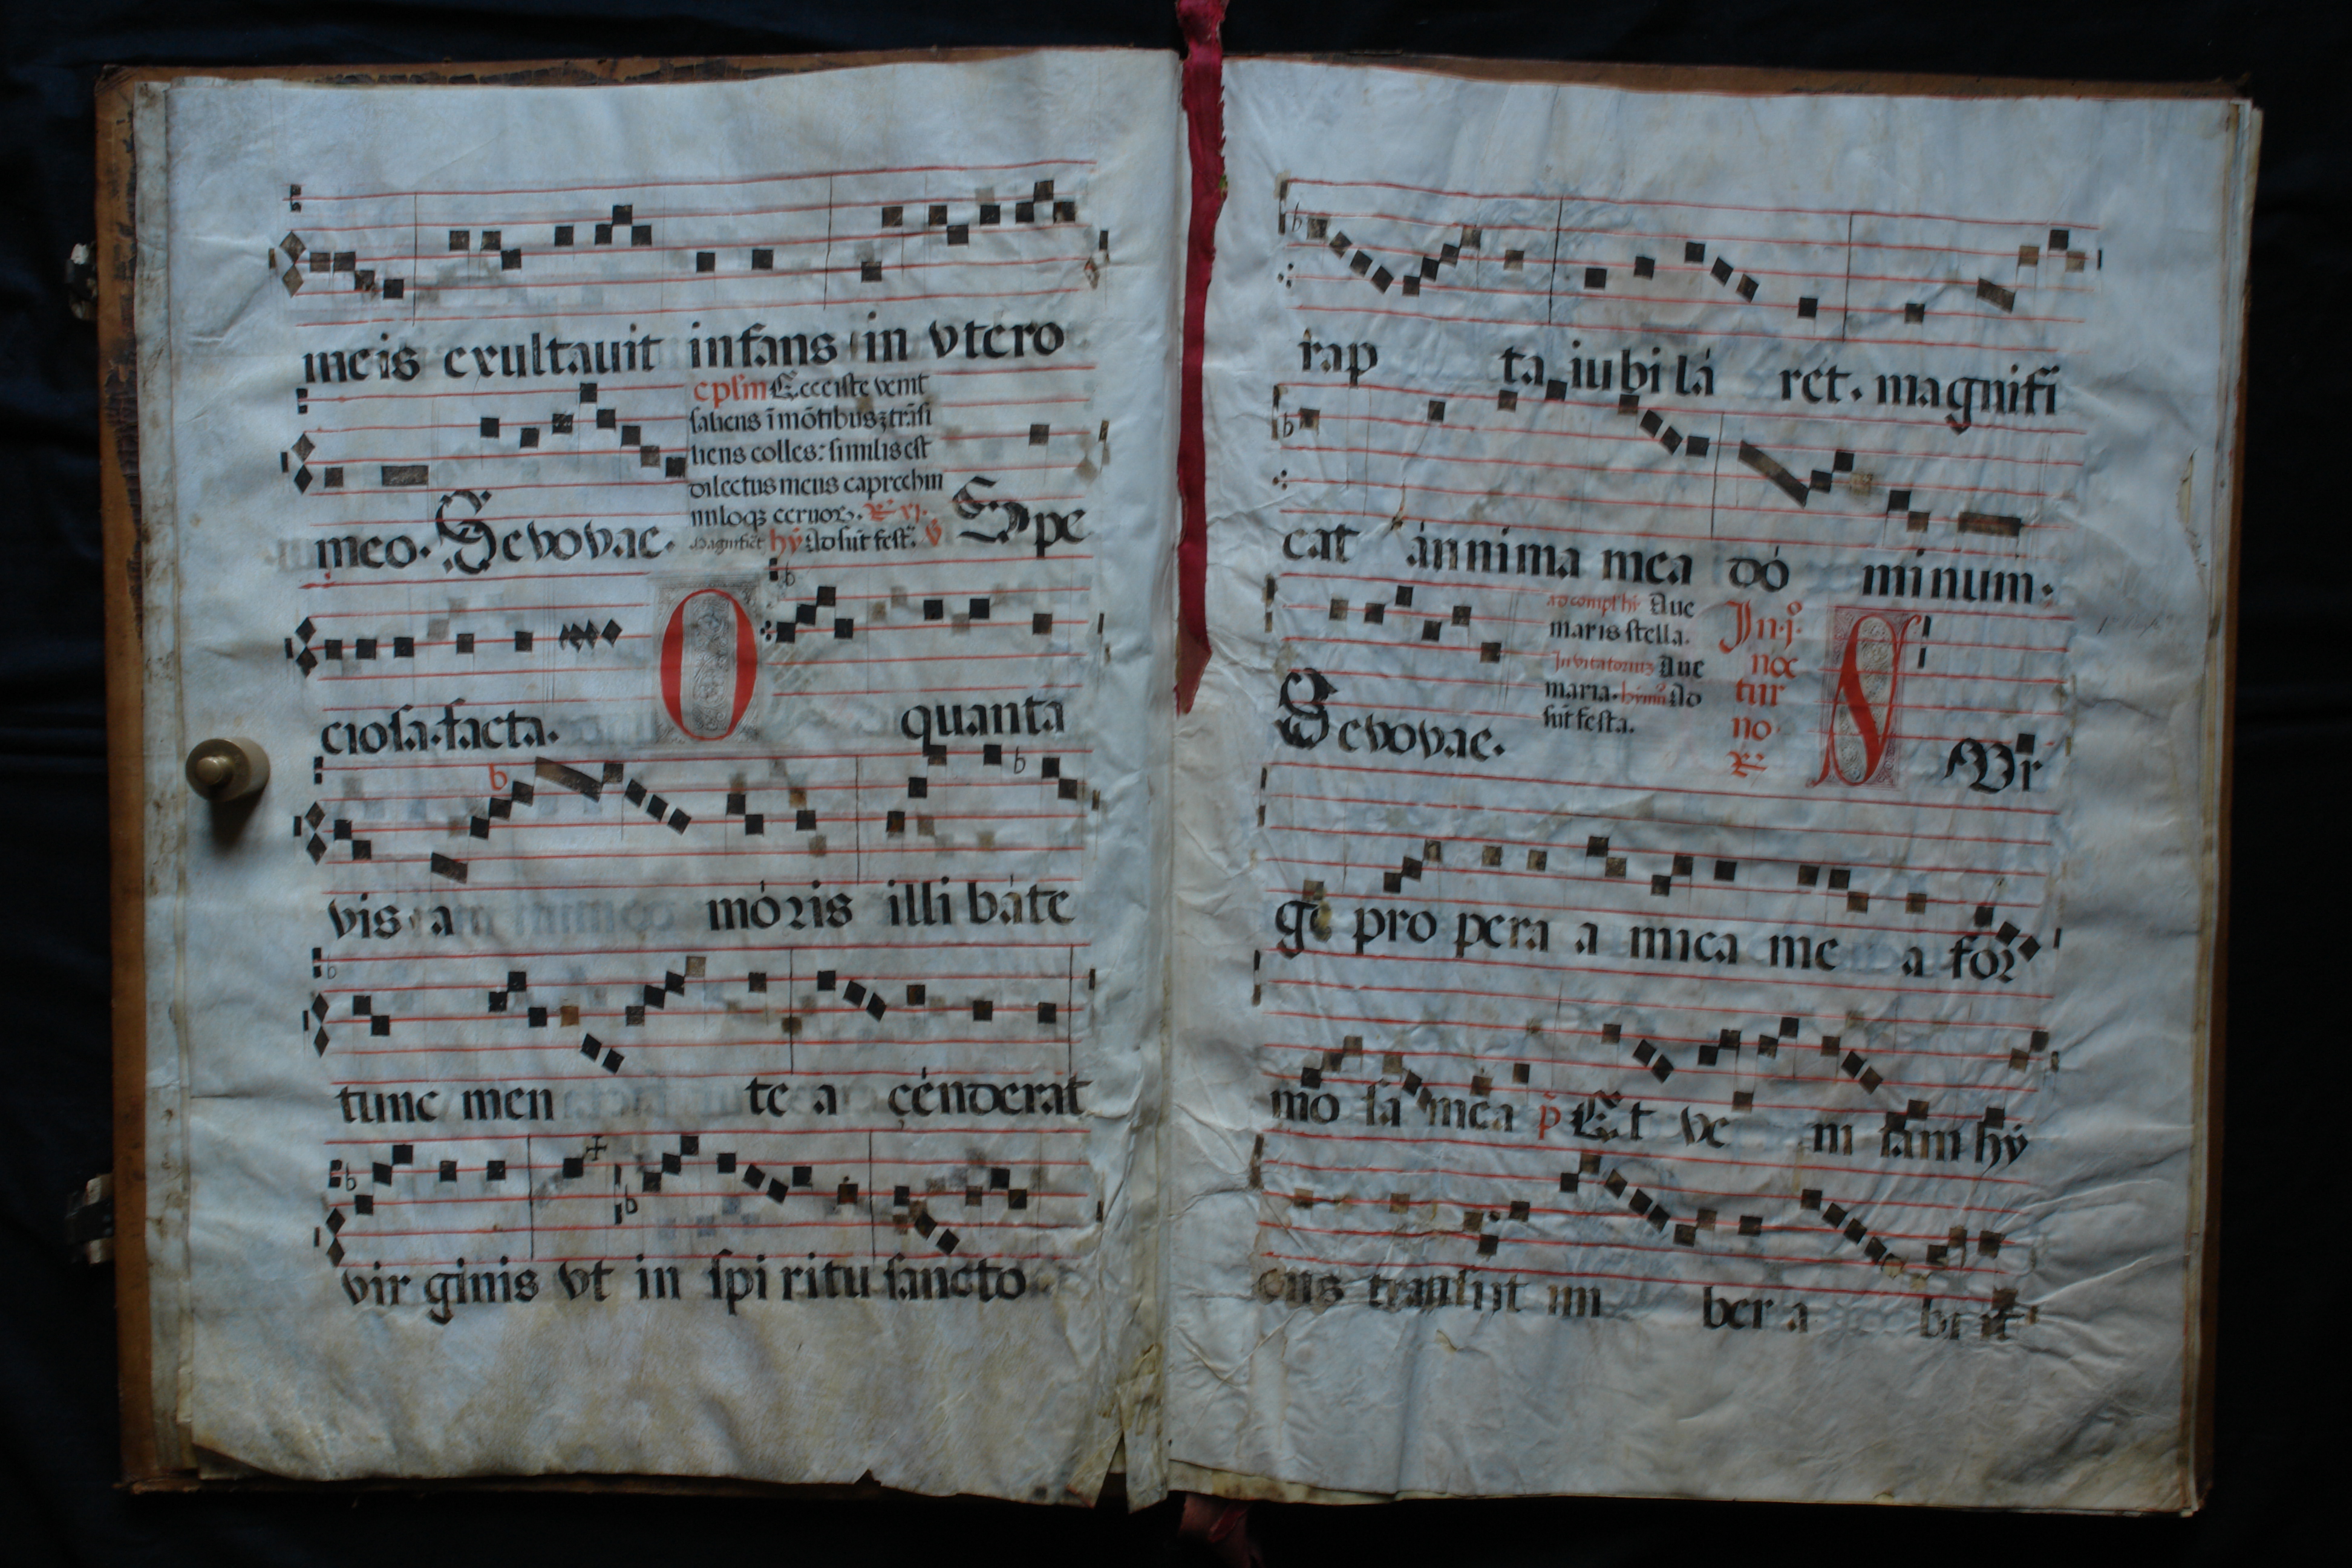 meis exultauit infans in vtero
cpsm Ecce iste venit
saliens ī mōtibus trāsi
liens colles: similis est
dilectus meus capree hin
nuloqz ceruoꝝ.
meo. Sevovae. Magnificat hỹ Ad sūt fest. Spe
ciosa.facta. O quanta
vis a móris illi báte
tunc men te a cénderat
vir ginis vt in spi ritu sancto
rap ta iu bi lá ret. magnifi
cat ánnima mea dó minum.
ad compl hi Aue
maris stella. In.j.º
Inuitatoriuz Aue noc
maria. himnº Ad tur
sūt festa. no
Sevovae. S Vr
ge pro pera a mica me a for
mo sa mea p̄ Et ve ni tam hy
ems transijt im ber a bi it